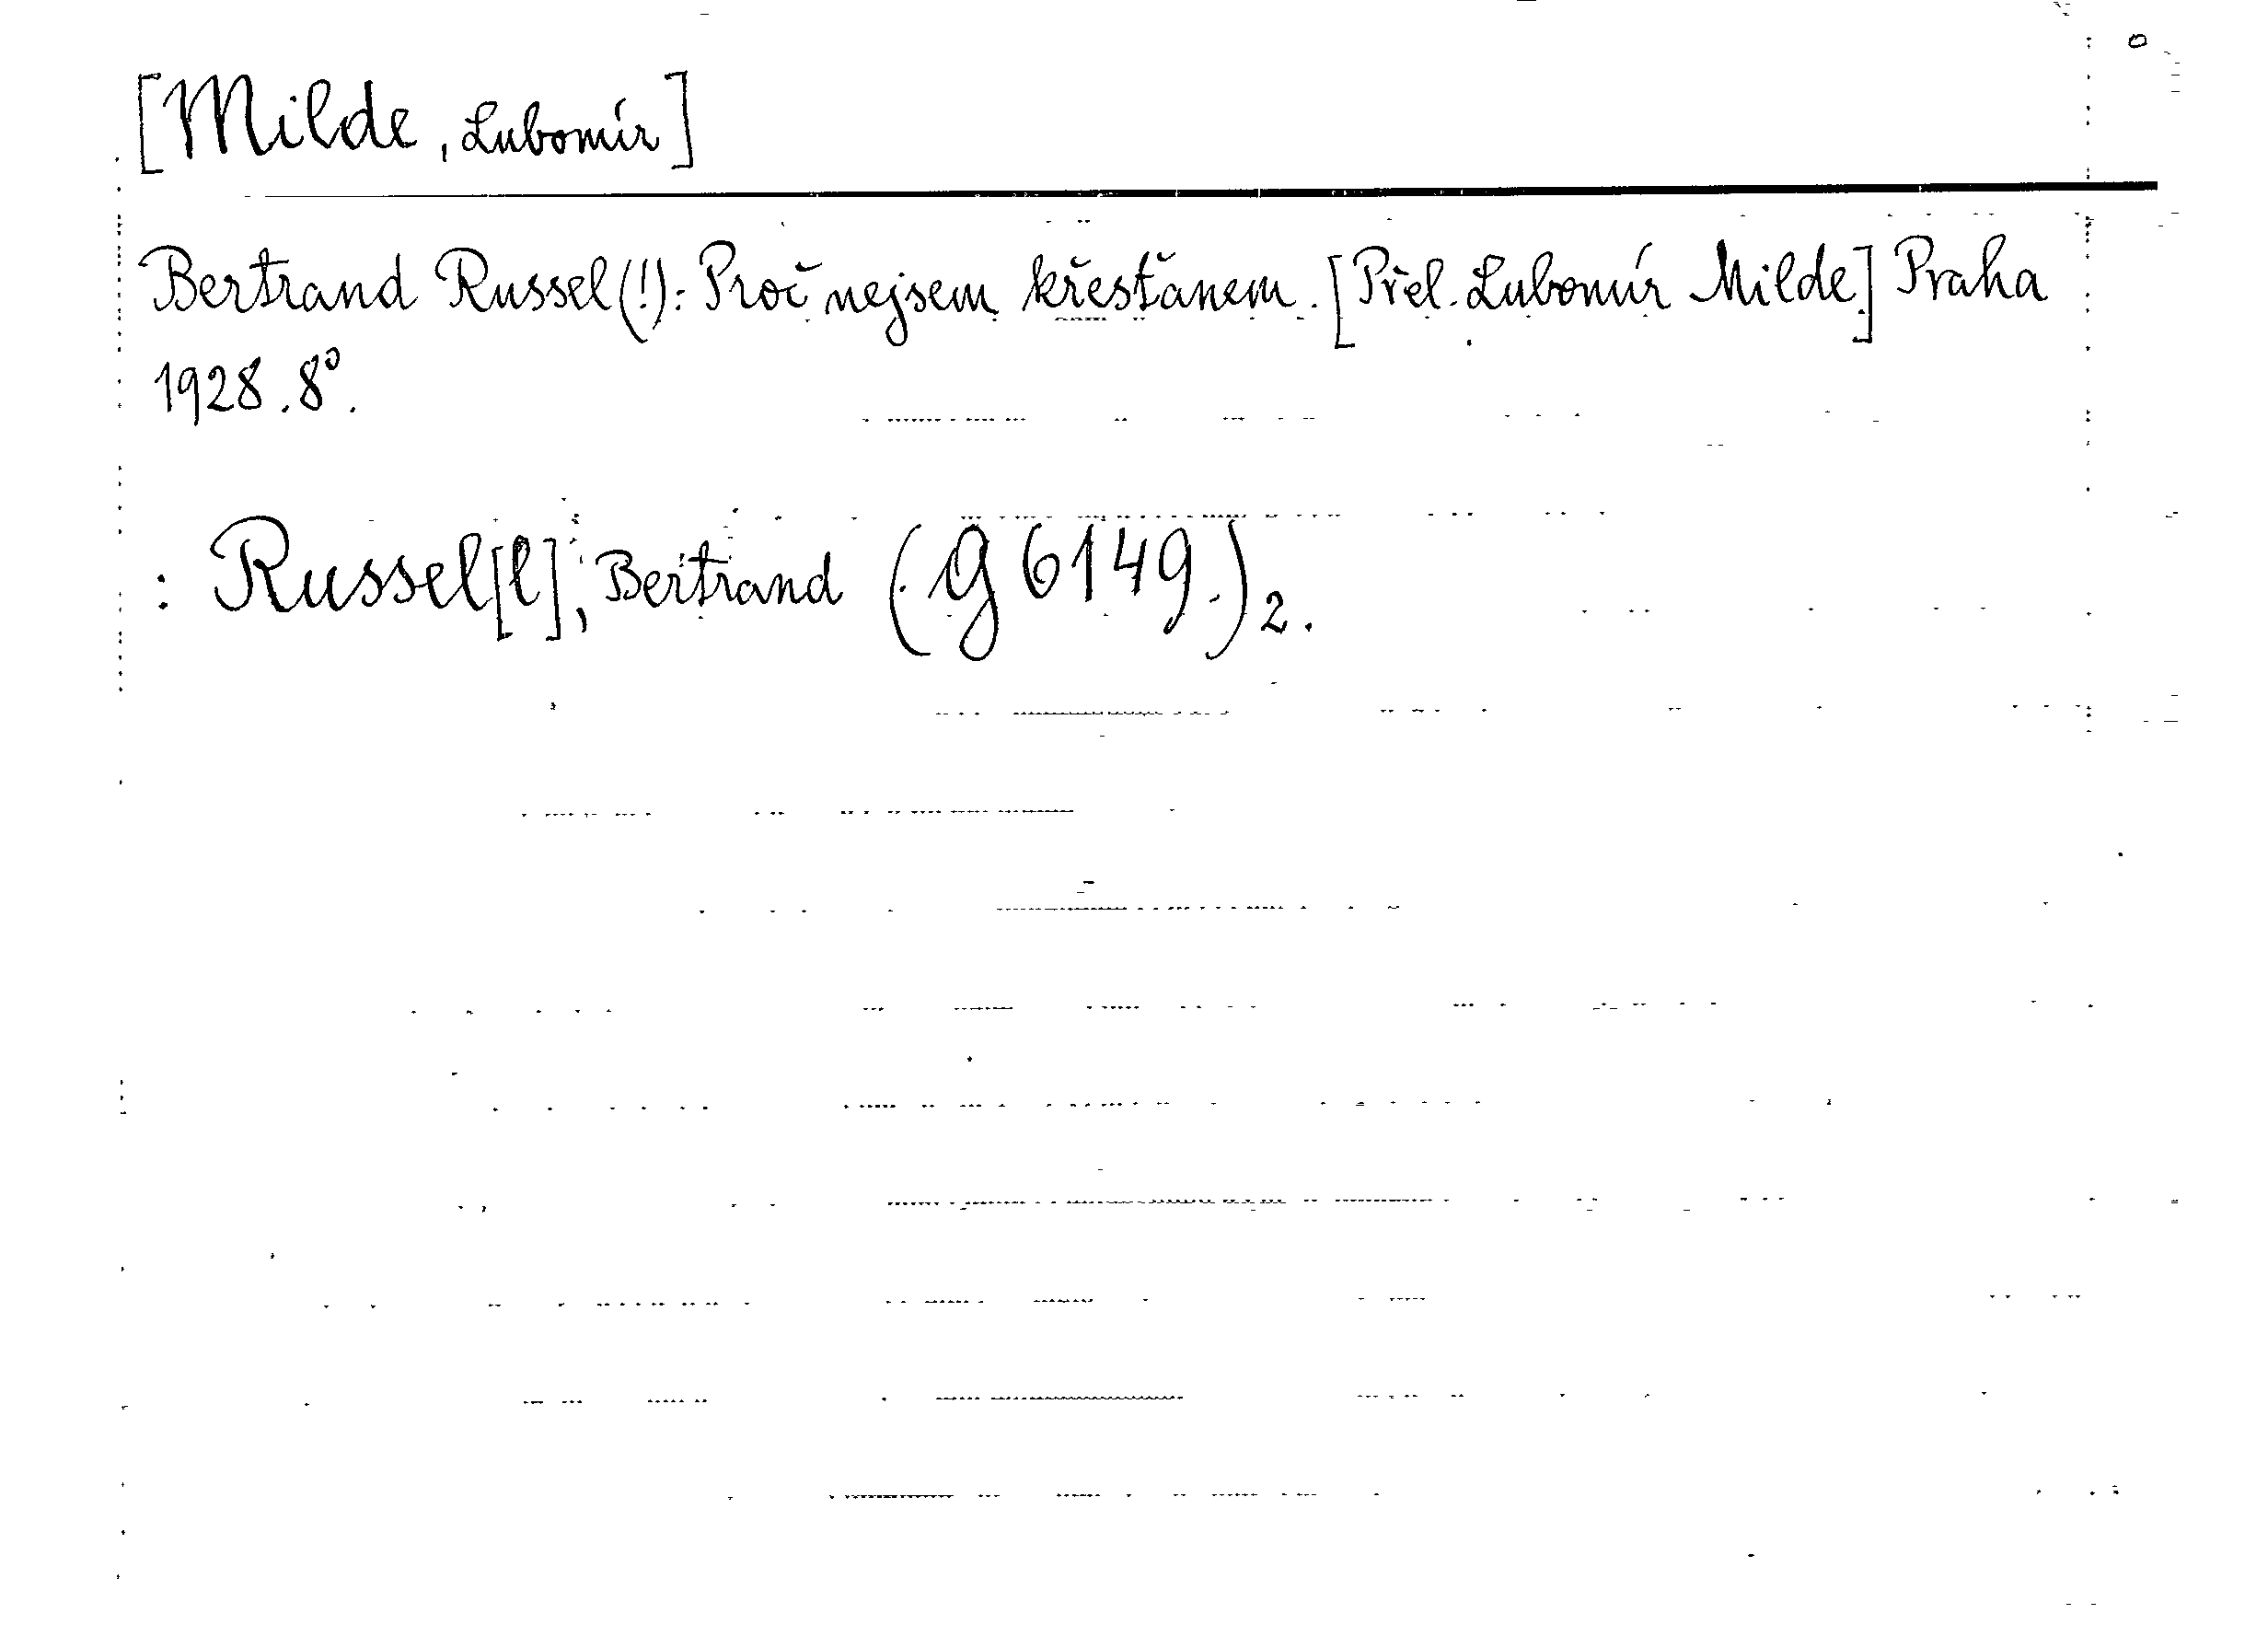 [Milde, Lubomír]
Bertrand Russel(!): Proč nejsem křesťanem. [Přel. Lubomír Milde] Praha
1928. 8°.
: Russel[l], Bertrand (g 6149.) 2.